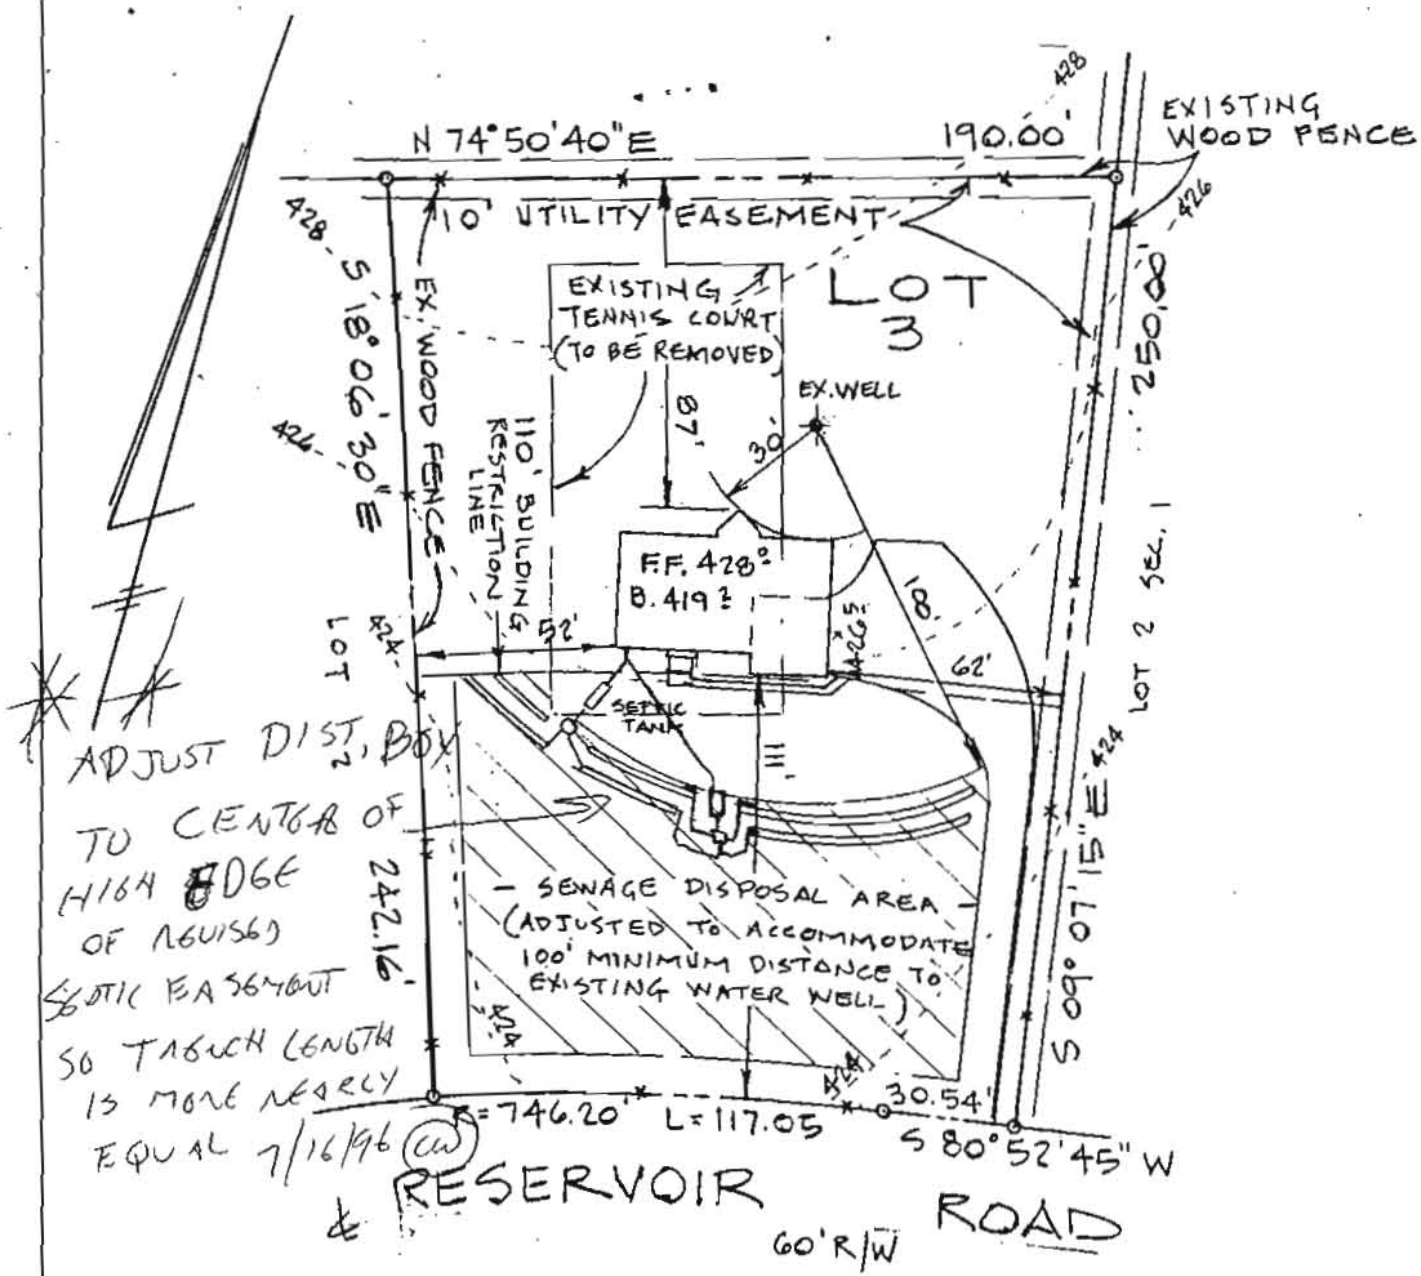 428
N 74°50'40"E
190.00'
EXISTING
WOOD FENCE
10' UTILITY EASEMENT
428
426
S 18°06'30"E
EX. WOOD FENCE
EXISTING
TENNIS COURT
(TO BE REMOVED)
LOT
3
250.00'
EX. WELL
87'
30'
426
110' BUILDING
RESTRICTION
LINE
F.F. 428
B. 419
LOT 2 SEC. 1
424
52'
62'
LOT
2
SEPTIC
TANK
111'
424
S 09°07'15"E
ADJUST DIST. BOX
TO CENTER OF
HIGH EDGE
OF REVISED
SEPTIC EASEMENT
SO TRENCH LENGTH
IS MORE NEARLY
EQUAL 7/16/96
242.16'
- SEWAGE DISPOSAL AREA -
(ADJUSTED TO ACCOMMODATE
100' MINIMUM DISTANCE TO
EXISTING WATER WELL)
424
424
R=746.20'
L=117.05
30.54'
S 80°52'45"W
RESERVOIR
ROAD
60' R/W